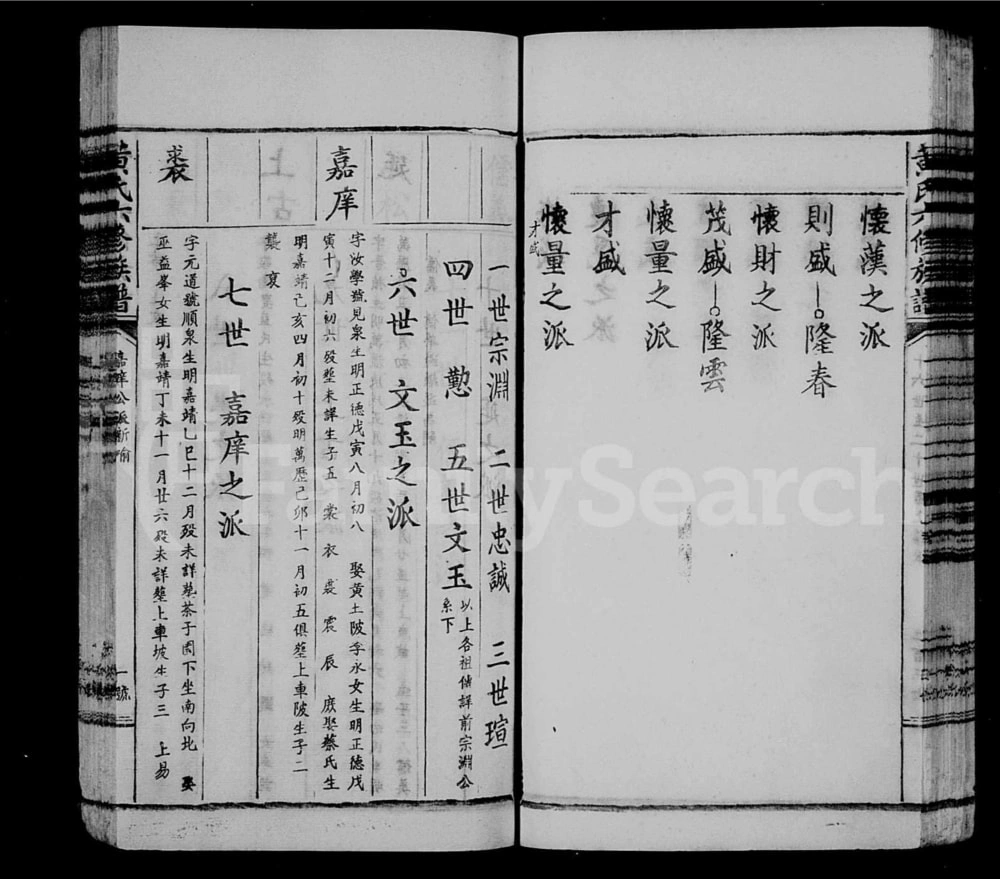 黃氏六修族譜
懷漢之派
則盛—隆春
懷財之派
茂盛—隆雲
懷量之派
才盛
懷量之派
才盛
一世宗淵 二世忠誠 三世瑄
四世懃 五世文玉 以上各祖俱詳前宗淵公
系下
六世 文玉之派
嘉庠
字汝學號見泉生明正德戊寅八月初八 娶黃土陂李永女生明正德戊
寅十二月初六歿塟未詳生子五 裳 衣 裘 震 辰 庶娶蔡氏生
明嘉靖己亥四月初十歿明萬歷己卯十一月初五俱塟上車陂生子二
裳 衮
七世 嘉庠之派
裘
字元道號順泉生明嘉靖乙巳十二月歿未詳塟茶子園下坐南向北 娶
巫益峯女生明嘉靖丁未十一月廿六歿未詳塟上車坡生子三 上易
黃氏六修族譜
嘉庠公派新喻
一號
FamilySearch